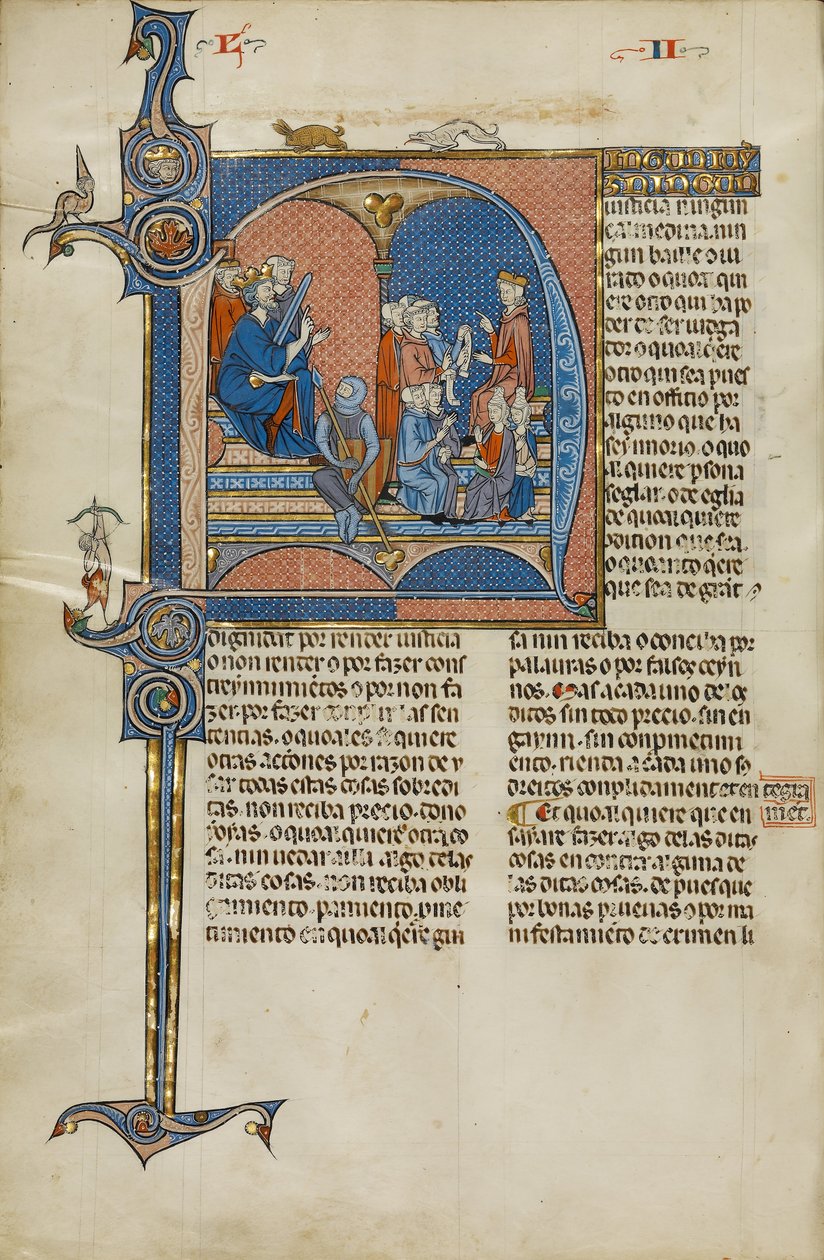 L II
N GUN IUÝ
Z NINGUN
iusticia ningun
çalmedina nin
gun baille o iu
rado o quoal qui
ere otro qui ha po
der de ser iudga
dor o quoal q̄ere
otro qui sea pues
to en officio por
alguno que ha
seynnorio. o quo
al quiere p̄sona
seglar. o de eglīa
de quoal quiere
9dition que sea.
o quanto q̄ere
que sea de grāt
dignidat por render iusticia
o non render o por fazer cons
treynnimiētos o por non fa
zer. por fazer conplir las sen
tencias. o quoales se quiere
otras acciones por razon de y
sar todas estas cosas sobredi
tas. non reciba precio. dono
ioyas. o quoal quiere otra co
sa. nin uedar a illi algo delas
ditas cosas. non reciba obli
gamiento. pamiento. p̄me
timiento en quoal q̄ere gui
sa nin reciba o conciba por
palauras o por falsos ceyn
nos. Mas a cada uno de los
ditos sin todo precio. sin en
gaynn. sin conpmetimi
ento. rienda a cada uno so
dreitos conplidament et en tegra
mēt.
Et quoal quiere que en
sayare fazer algo delas ditas
cosas en contra alguna de
las ditas cosas. de pues que
por bonas prueuas o por ma
nifestamiēto de crimen li